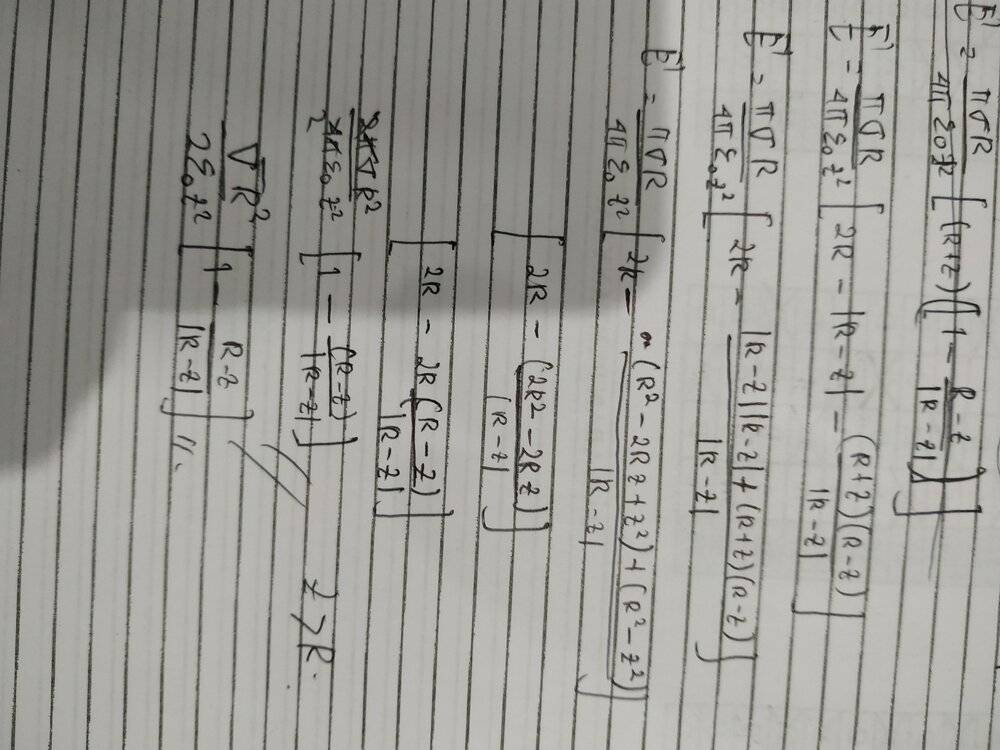 E = πσR / 4πε₀z² [(R+z) (1 - R-z / |R-z|)]
E = πσR / 4πε₀z² [2R - |R-z| - (R+z)(R-z) / |R-z|]
E = πσR / 4πε₀z² [2R - |R-z||R-z| + (R+z)(R-z) / |R-z|]
E = πσR / 4πε₀z² [2R - (R² - 2Rz + z²) + (R² - z²) / |R-z|]
[2R - (2R² - 2Rz) / |R-z|]
[2R - 2R(R-z) / |R-z|]
2πσR² / 4πε₀z² [1 - (R-z) / |R-z|] z > R.
σR² / 2ε₀z² [1 - R-z / |R-z|] //.